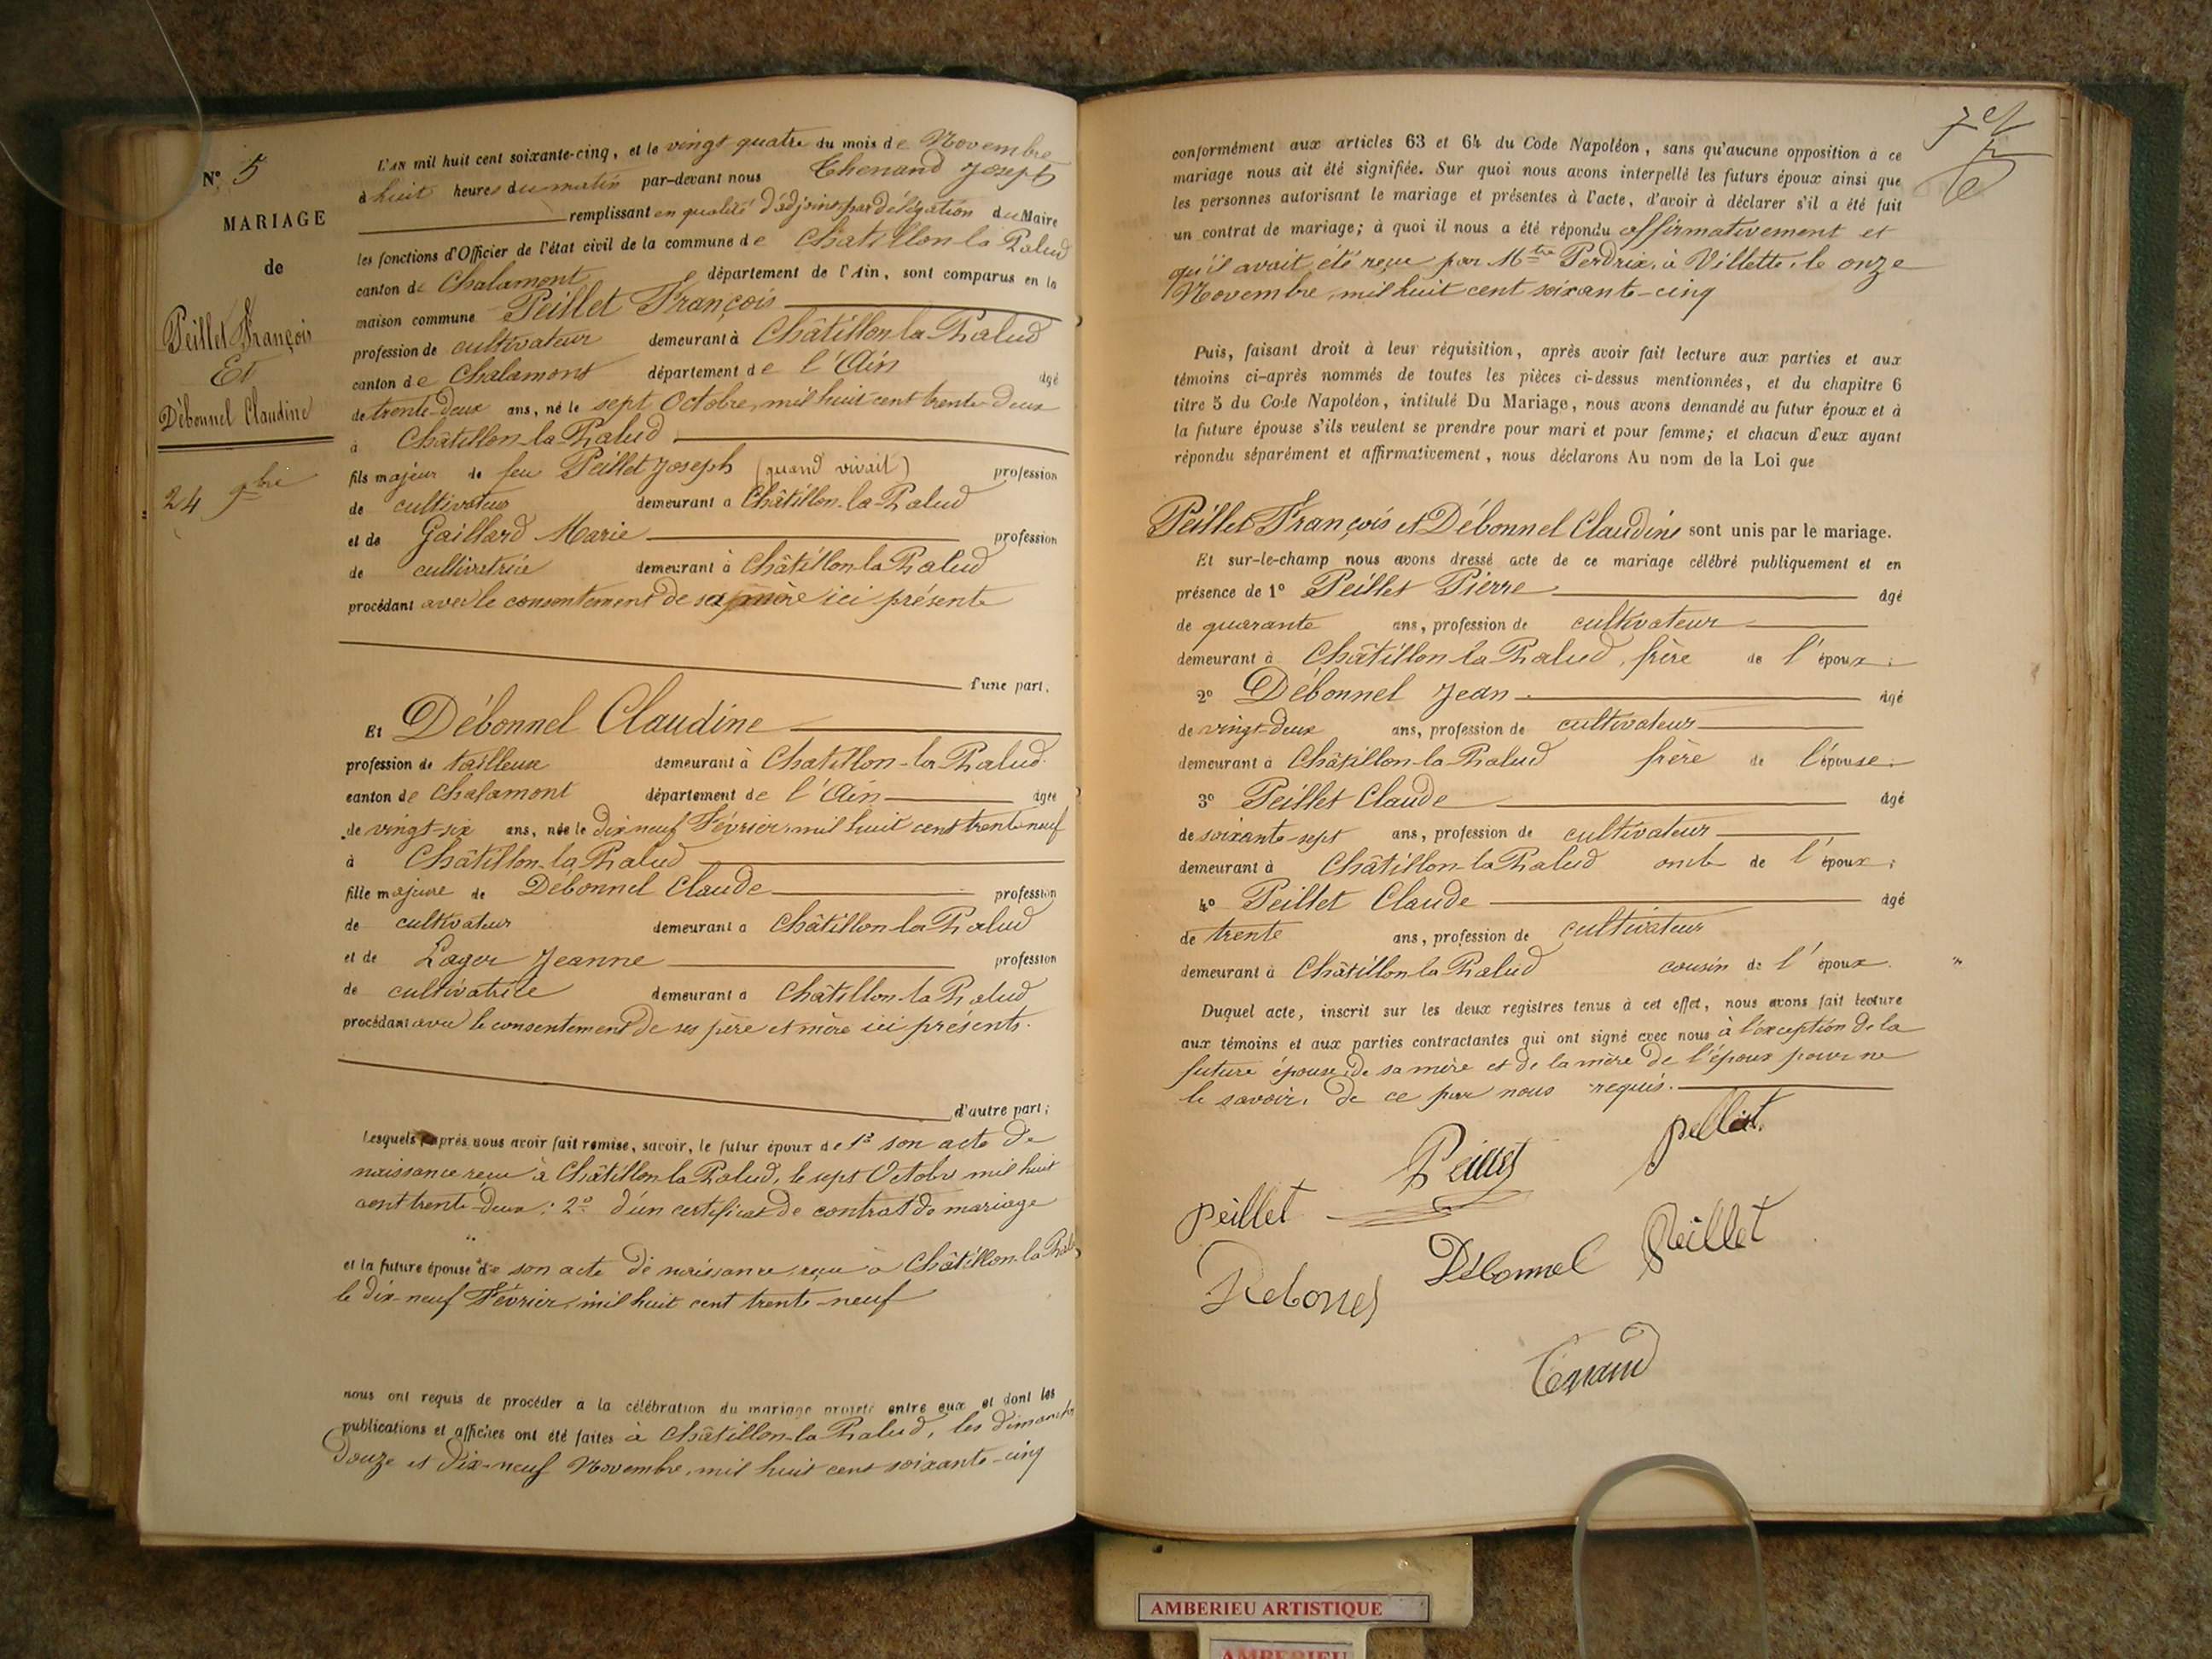 N° 5
MARIAGE
de
Peillet François
Et
Débonnel Claudine
24 9bre
L'AN mil huit cent soixante-cinq, et le vingt quatre du mois de Novembre
à huit heures du matin par-devant nous Thenand Joseph
remplissant en qualité d'adjoint par délégation du Maire
les fonctions d'Officier de l'état civil de la commune de Chatillon la Palud
canton de Chalamont département de l'Ain, sont comparus en la
maison commune Peillet François
profession de cultivateur demeurant à Châtillon-la-Palud
canton de Chalamont département de l'Ain âgé
de trente-deux ans, né le sept Octobre, mil huit cent trente-deux
à Châtillon-la-Palud
fils majeur de feu Peillet Joseph (quand vivait) profession
de cultivateur demeurant à Châtillon-la-Palud
et de Gaillard Marie profession
de cultivatrice demeurant à Châtillon-la-Palud
procédant avec le consentement de sa mère ici présente
d'une part,
Et Débonnel Claudine
profession de tailleuse demeurant à Chatillon-la-Palud
canton de Chalamont département de l'Ain âgée
de vingt-six ans, née le dix neuf Février, mil huit cent trente-neuf
à Châtillon-la-Palud
fille majeure de Débonnel Claude profession
de cultivateur demeurant à Châtillon-la-Palud
et de Lager Jeanne profession
de cultivatrice demeurant à Châtillon-la-Palud
procédant avec le consentement de ses père et mère ici présents.
d'autre part;
Lesquels après nous avoir fait remise, savoir, le futur époux de 1° son acte de
naissance reçu à Châtillon-la-Palud, le sept Octobre mil huit
cent trente-deux; 2° d'un certificat de contrat de mariage
et la future épouse de son acte de naissance, reçu à Châtillon-la-Palud
le dix-neuf Février, mil huit cent trente-neuf
nous ont requis de procéder à la célébration du mariage projeté entre eux et dont les
publications et affiches ont été faites à Châtillon-la-Palud, les dimanches
douze et dix-neuf Novembre, mil huit cent soixante-cinq
conformément aux articles 63 et 64 du Code Napoléon, sans qu'aucune opposition à ce
mariage nous ait été signifiée. Sur quoi nous avons interpellé les futurs époux ainsi que
les personnes autorisant le mariage et présentes à l'acte, d'avoir à déclarer s'il a été fait
un contrat de mariage; à quoi il nous a été répondu affirmativement et
qu'il avait été reçu par Mtre Perdrix, à Villette, le onze
Novembre, mil huit cent soixante-cinq
Puis, faisant droit à leur réquisition, après avoir fait lecture aux parties et aux
témoins ci-après nommés de toutes les pièces ci-dessus mentionnées, et du chapitre 6
titre 5 du Code Napoléon, intitulé Du Mariage, nous avons demandé au futur époux et à
la future épouse s'ils veulent se prendre pour mari et pour femme; et chacun d'eux ayant
répondu séparément et affirmativement, nous déclarons Au nom de la Loi que
Peillet François et Débonnel Claudine sont unis par le mariage.
Et sur-le-champ nous avons dressé acte de ce mariage célébré publiquement et en
présence de 1° Peillet Pierre âgé
de quarante ans, profession de cultivateur
demeurant à Châtillon-la-Palud, frère de l'époux;
2° Débonnel Jean âgé
de vingt-deux ans, profession de cultivateur
demeurant à Châtillon-la-Palud frère de l'épouse;
3° Peillet Claude âgé
de soixante-sept ans, profession de cultivateur
demeurant à Châtillon-la-Palud oncle de l'époux;
4° Peillet Claude âgé
de trente ans, profession de cultivateur
demeurant à Châtillon-la-Palud cousin de l'époux.
Duquel acte, inscrit sur les deux registres tenus à cet effet, nous avons fait lecture
aux témoins et aux parties contractantes qui ont signé avec nous à l'exception de la
future épouse, de sa mère et de la mère de l'époux pour ne
le savoir, de ce par nous requis.
Peillet
pellet
peillet
Débonnel
Peillet
Debonel
Tenand
AMBERIEU ARTISTIQUE
AMBERIEU